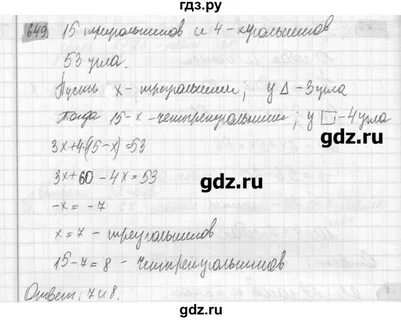 649. 15 треугольников и 4-хугольников
53 угла.
Пусть x - треугольники; у △ - 3 угла
Тогда 15-x - четырёхугольники; у □ - 4 угла
3x+4(15-x)=53
3x+60-4x=53
-x=-7
x=7 - треугольников
15-7=8 - четырёхугольников
Ответ: 7 и 8.
gdz.ru
gdz.ru
gdz.ru
gdz.ru